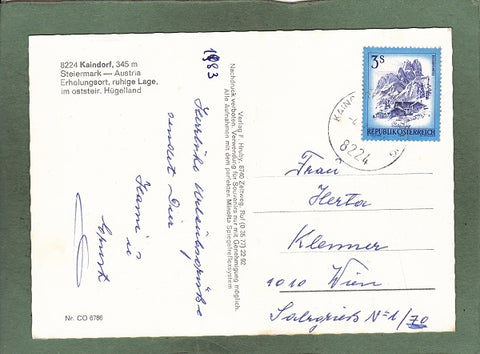 8224 Kaindorf, 345 m
Steiermark — Austria
Erholungsort, ruhige Lage,
im oststeir. Hügelland
1983
Herzliche Urlaubsgrüße
sendet Dir
Nr. CO 6786
Verlag F. Hruby, 8740 Zeltweg, Ruf (0 35 77) 22 92
Nachdruck verboten. Verwendung für Souvenirs nur mit Genehmigung möglich.
Alle Aufnahmen mit dem perfekten Minolta Spiegelreflexsystem
3 S
REPUBLIK ÖSTERREICH
8224
Frau
Herta
Klemmer
1010 Wien
Salzgries No 1/70